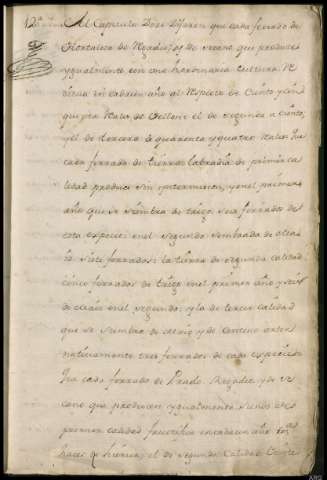 12ª Al Capitulo Doze Dijeron que cada ferrado de
Hortaliza de Regadio, y de secano que produce
ygualmente con una hordinaria Cultura
en cada un año al Respecto de Ciento y cinq
quenta Reales de Vellon: el de segunda a ciento;
y el de tercera a quarenta y quatro Reales Que
cada ferrado de tierra labradia de primera ca
lidad produce sin yntermision, y en el primero
año que se siembra de trigo seis ferrados de
esta especie: en el segundo sembrada de
siete ferrados: la tierra de segunda calidad
cinco ferrados de trigo en el primer año y seis
de en el segundo; y la de tercer calidad
que se siembra de y de Centeno alter
nativamente tres ferrados de cada especie:
Que cada ferrado de Prado Regadio y de se
cano que producen ygualmente siendo de
primera calidad fructifica en cada un año
de hierva; el de segunda Calidad